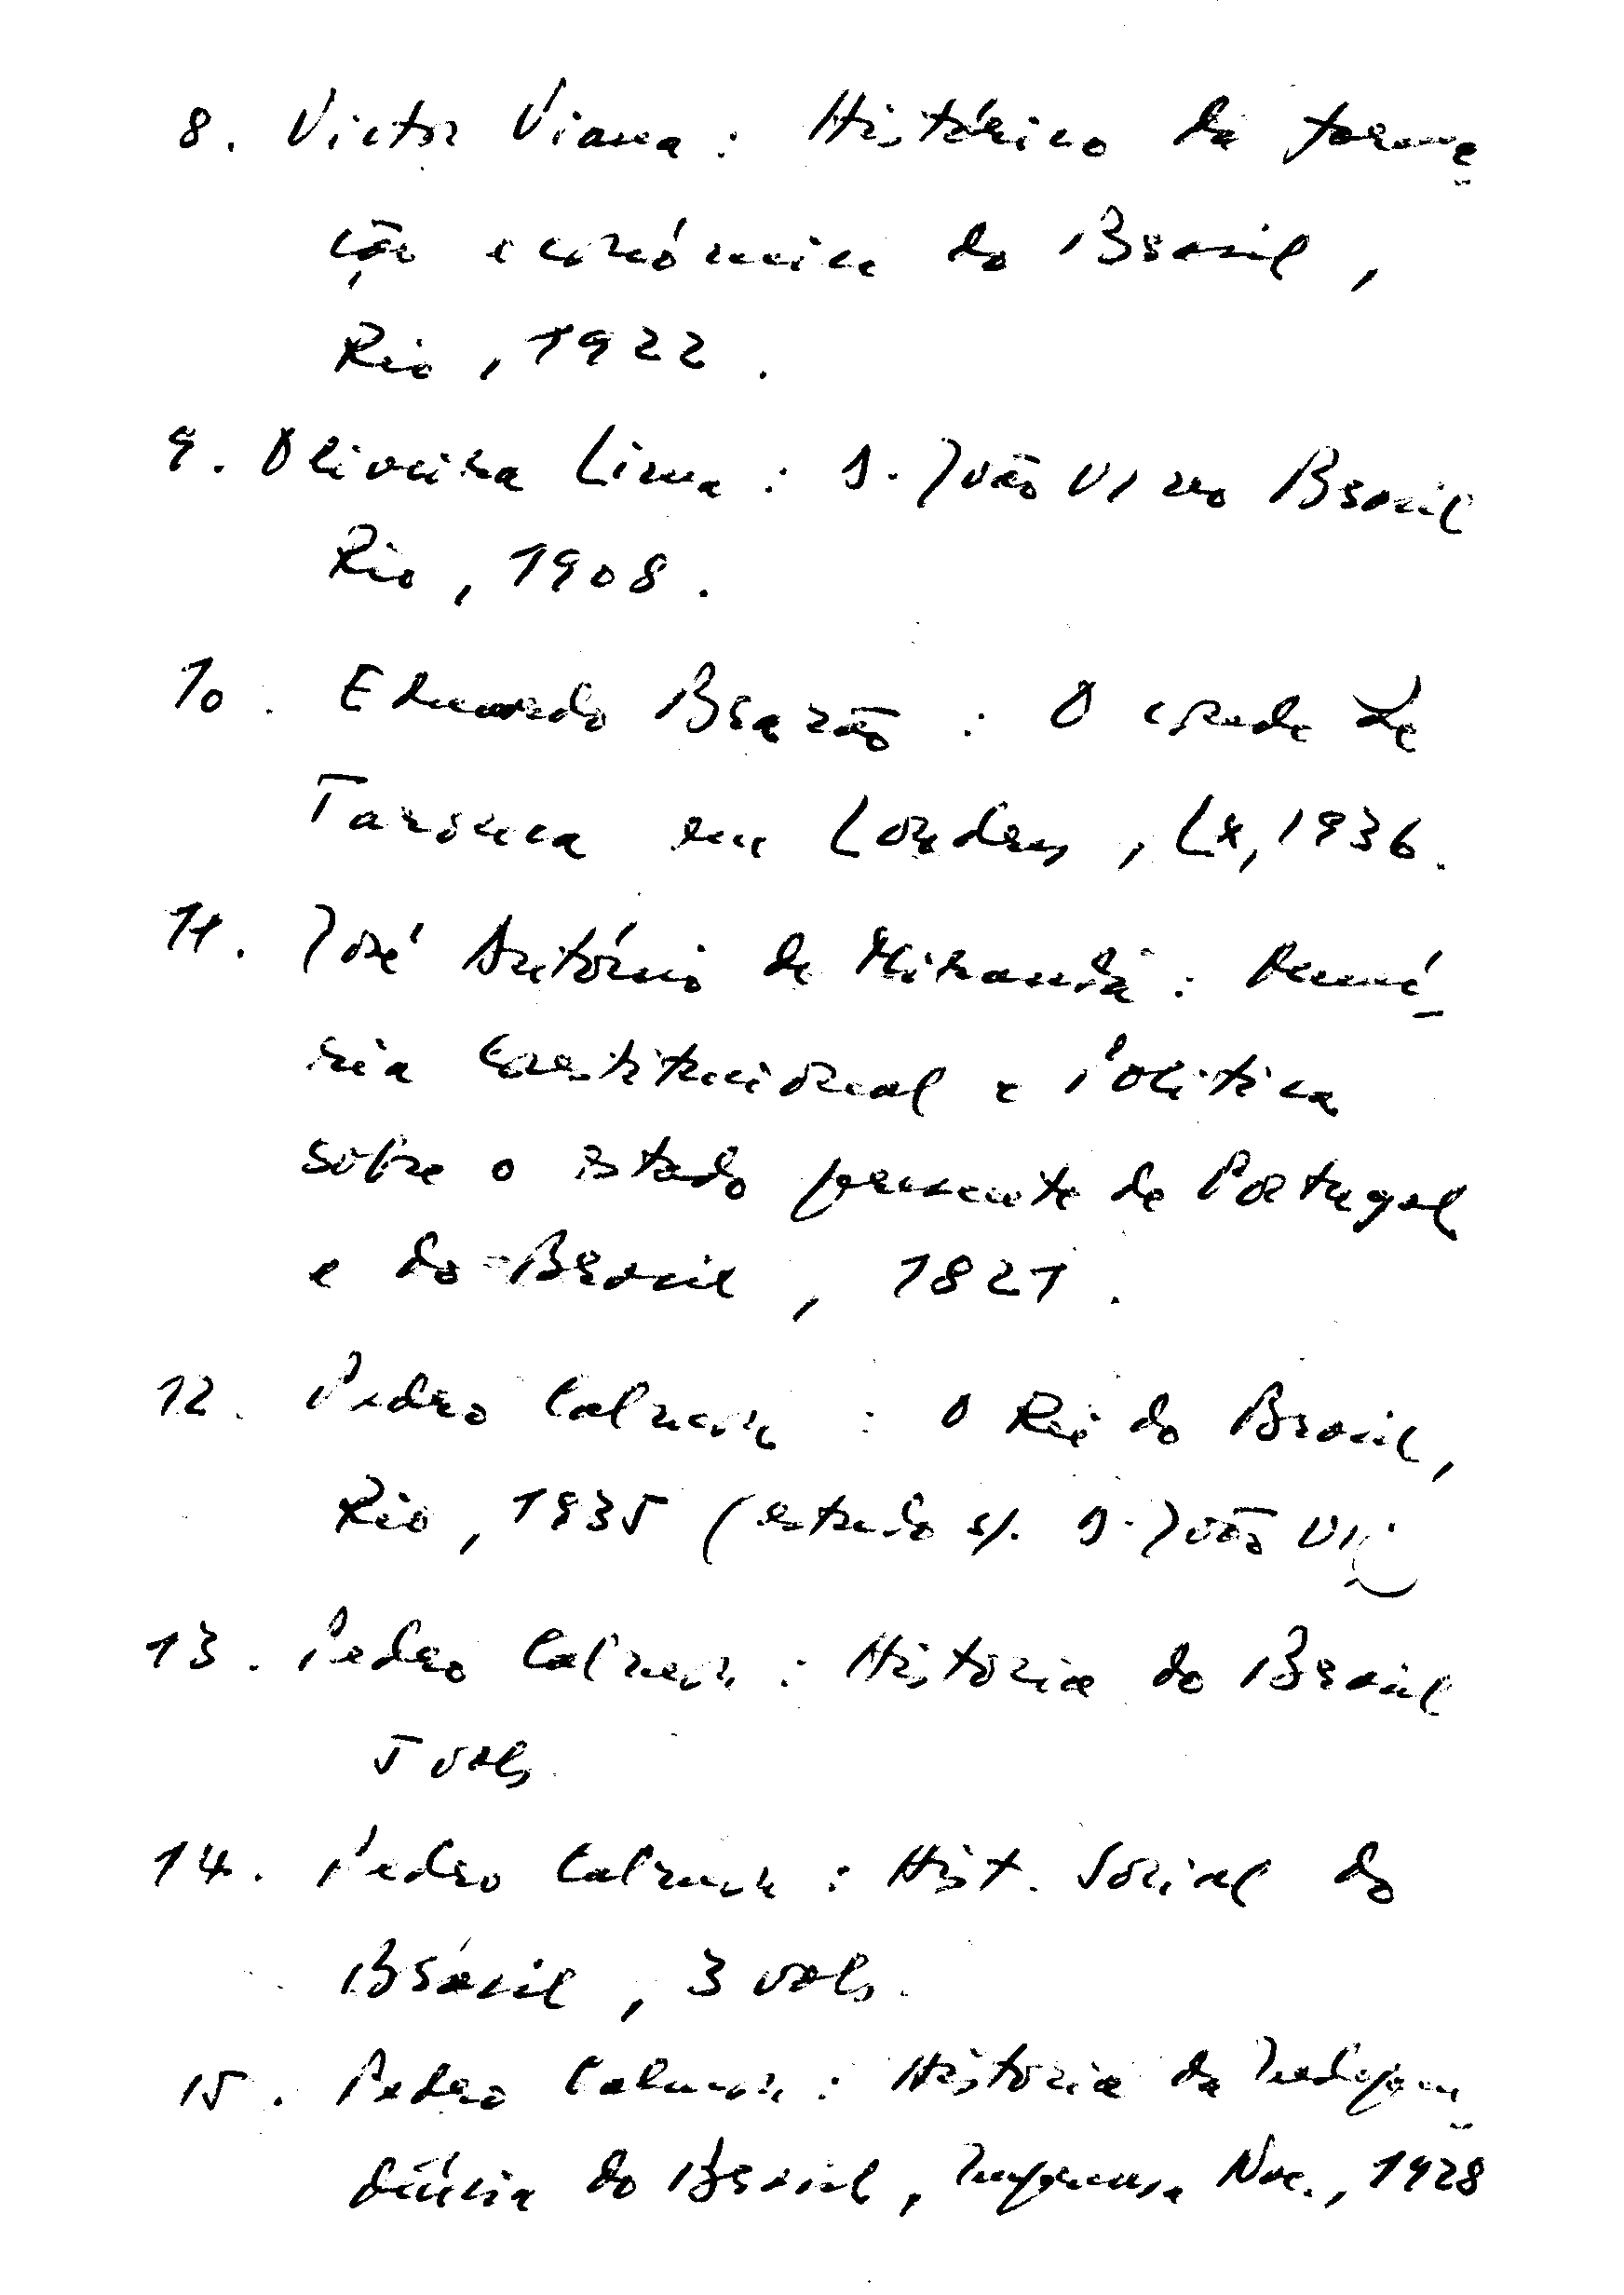 8. Victor Viana : Histórico da forma-
ção económica do Brasil,
Rio, 1922.
9. Oliveira Lima : D. João VI no Brasil
Rio, 1908.
10. Eduardo Brazão : O conde de
Tarouca em Londres, Lx, 1936.
11. José António de Miranda : Memó-
ria Constitucional e Política
sobre o estado presente de Portugal
e do Brasil, 1821.
12. Pedro Calmon : O Rei do Brasil,
Rio, 1935 (estudo s/. D. João VI)
13. Pedro Calmon : Historia do Brasil
5 vols.
14. Pedro Calmon : Hist. Social do
Brasil, 3 vols.
15. Pedro Calmon : Historia da Indepen-
dência do Brasil, Imprensa Nac., 1928